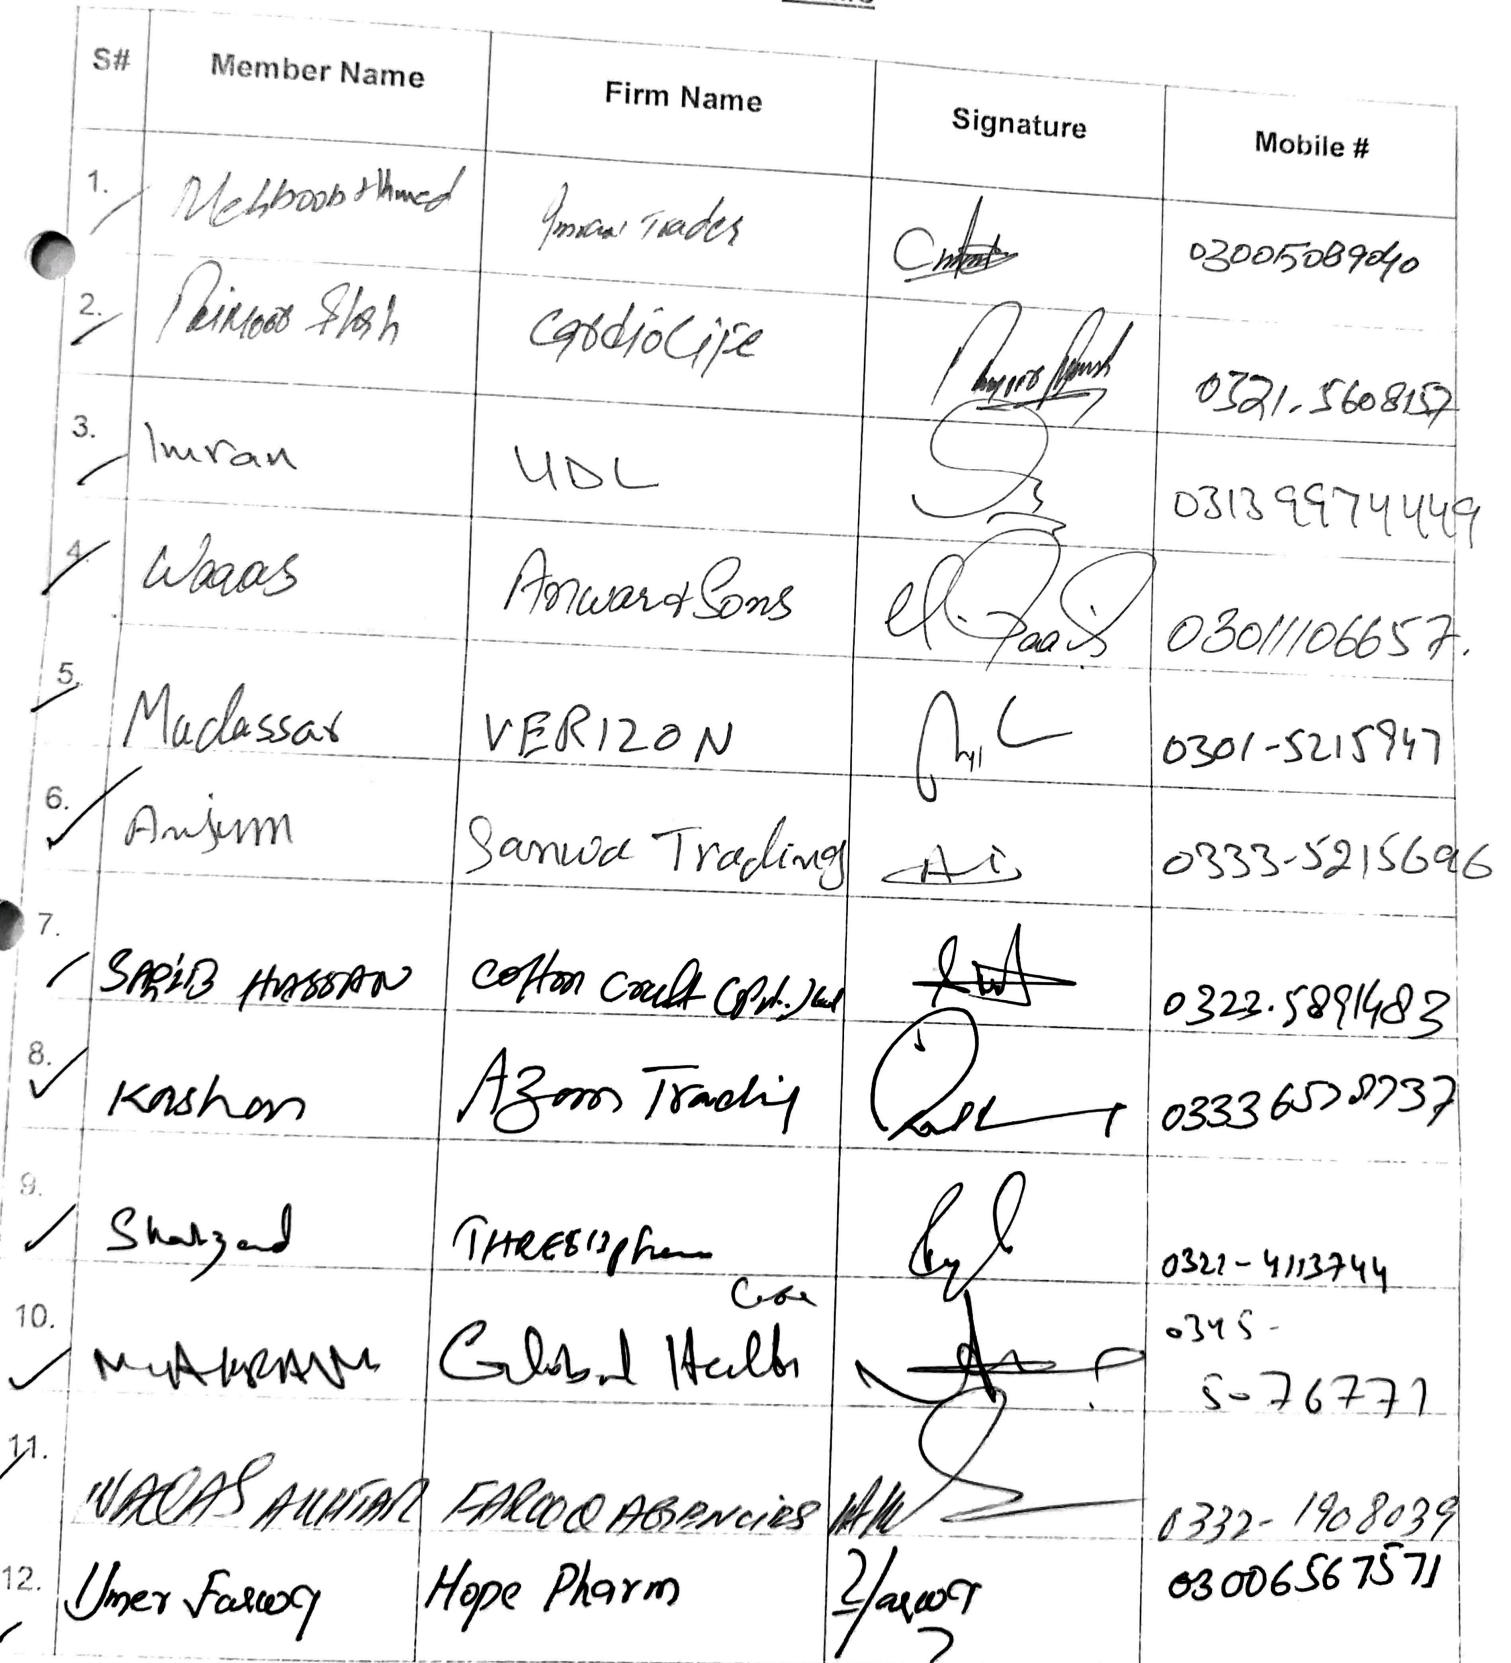 S# Member Name Firm Name Signature Mobile #
1. Mehboob Ahmed Imran Trader 03005089040
2. Taimoor Shah Cardiolife 0321.5608157
3. Imran UDL 03139974449
4. Waqas Anwar & Sons 03011106657.
5. Mudassar VERIZON 0301-5215947
6. Anjum Sanwa Trading 0333-5215696
7. SAQIB HASSAN Cotton Craft (Pvt.) Ltd 0323.5891483
8. Kashan Azam Trading 0333
9. Shahzad 0321-4113744
10. M. AKRAM Global Health Care 0345-
5076771
11. WAQAS AKHTAR FAROOQ AGENCIES 0332-1908039
12. Umer Farooq Hope Pharm Farooq 03006567571